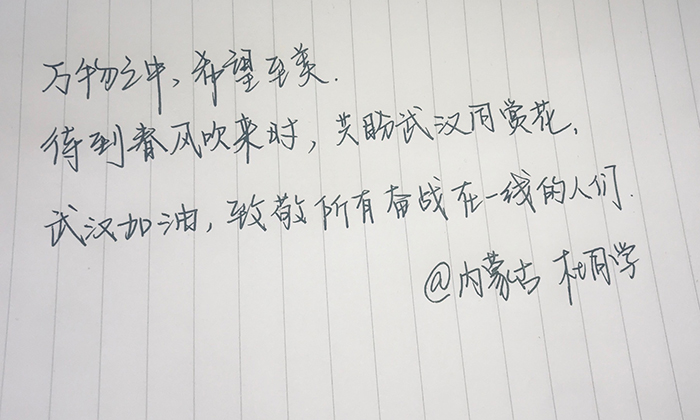 万物之中，希望至美.
待到春风吹来时，共盼武汉同赏花，
武汉加油，致敬所有奋战在一线的人们.
@内蒙古 杜同学